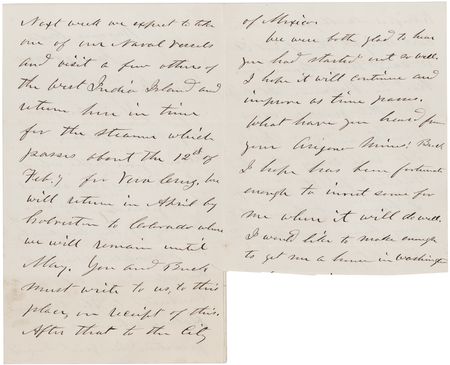 Next week we expect to take
one of our Naval vessels
and visit a few others of
the West India Island and
return here in time
for the steamer which
passes about the 12th of
Feb.y for Vera Cruz. We
will return in April by
Galveston to Colorado where
we will remain until
May. You and Buck
must write to us, to this
place, on receipt of this.
After that to the City
of Mexico.
We were both glad to hear
you had started out so well.
I hope it will continue and
improve as time passes.
What have you heard from
your Arizona Mines? Buck
I hope has been fortunate
enough to invest some for
me where it will do well.
I would like to make enough
to get me a home in Washington